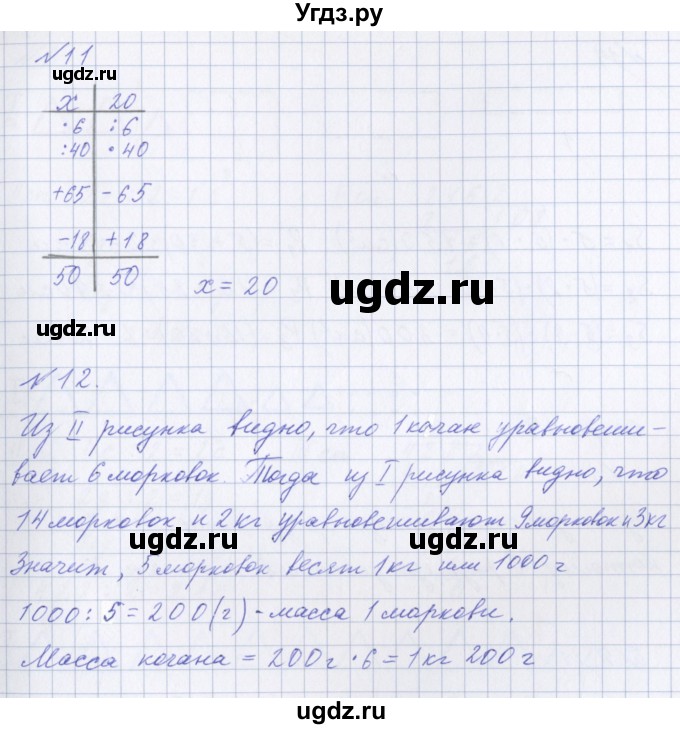 Угдз.ру
№11
ugdz.ru
x | 20
·6 | :6
:40 | ·40
+65 | -65
-18 | +18
50 | 50
x = 20
ugdz.ru
ugdz.ru
№12.
Из II рисунка видно, что 1 кочан уравновеши-
вает 6 морковок. Тогда из I рисунка видно, что
14 морковок и 2 кг уравновешивают 9 морковок и 3 кг
Значит, 5 морковок весят 1 кг или 1000 г
ugdz.ru
1000 : 5 = 200 (г) - масса 1 моркови.
ugdz.ru
Масса кочана = 200 г · 6 = 1 кг 200 г
ugdz.ru